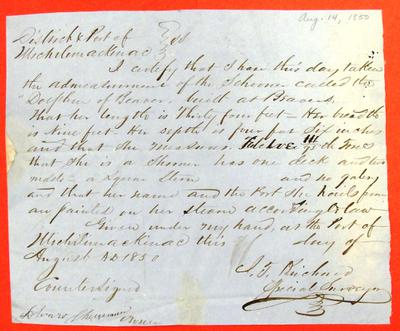 Aug. 14, 1850
District & Port of
Michilimackinac } SS
I certify that I have this day taken
the admeasurement of the Schooner called the
"Dolphin of Beaver, built at Beaver.
That her length is Thirty four feet - Her breadth
is Nine feet - Her depth is four feet Six inches
and that She measures Twelve Tons
that She is a Schooner has one deck and two
masts - a Square Stern and no galery
and that her name and the Port She hails from
are painted on her Stearn according to law
Given under my hand, at the Port of
Michilimackinac this day of
August AD 1850
J. F. Richard
Special Surveyor
Countersigned
Owner